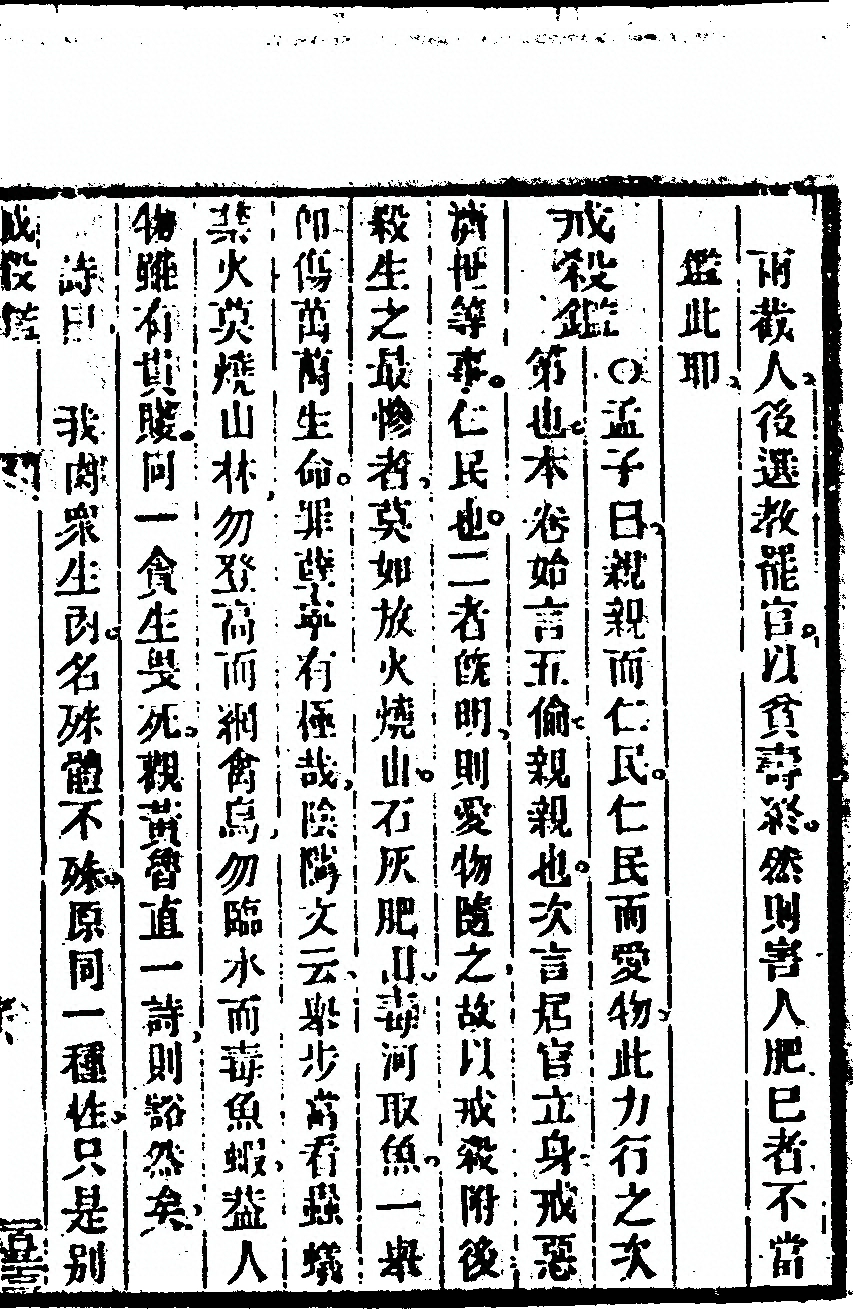 兩截人後選教罷官以貧壽終然則害人肥巳者不當
鑑此耶
戒殺鑑○孟子曰親親而仁民仁民而愛物此力行之次
第也本卷始言五倫親親也次言居官立身戒惡
濟世等事仁民也二者旣明則愛物隨之故以戒殺附後
殺生之最慘者莫如放火燒山石灰肥田毒河取魚一舉
卽傷萬萬生命罪孽寧有極哉陰隲文云舉步當看蟲蟻
禁火莫燒山林勿登高而網禽鳥勿臨水而毒魚蝦益人
物雖有貴賤同一貪生畏死觀黃魯直一詩則豁然矣
詩曰 我肉衆生肉名殊體不殊原同一種性只是別
戒殺鑑